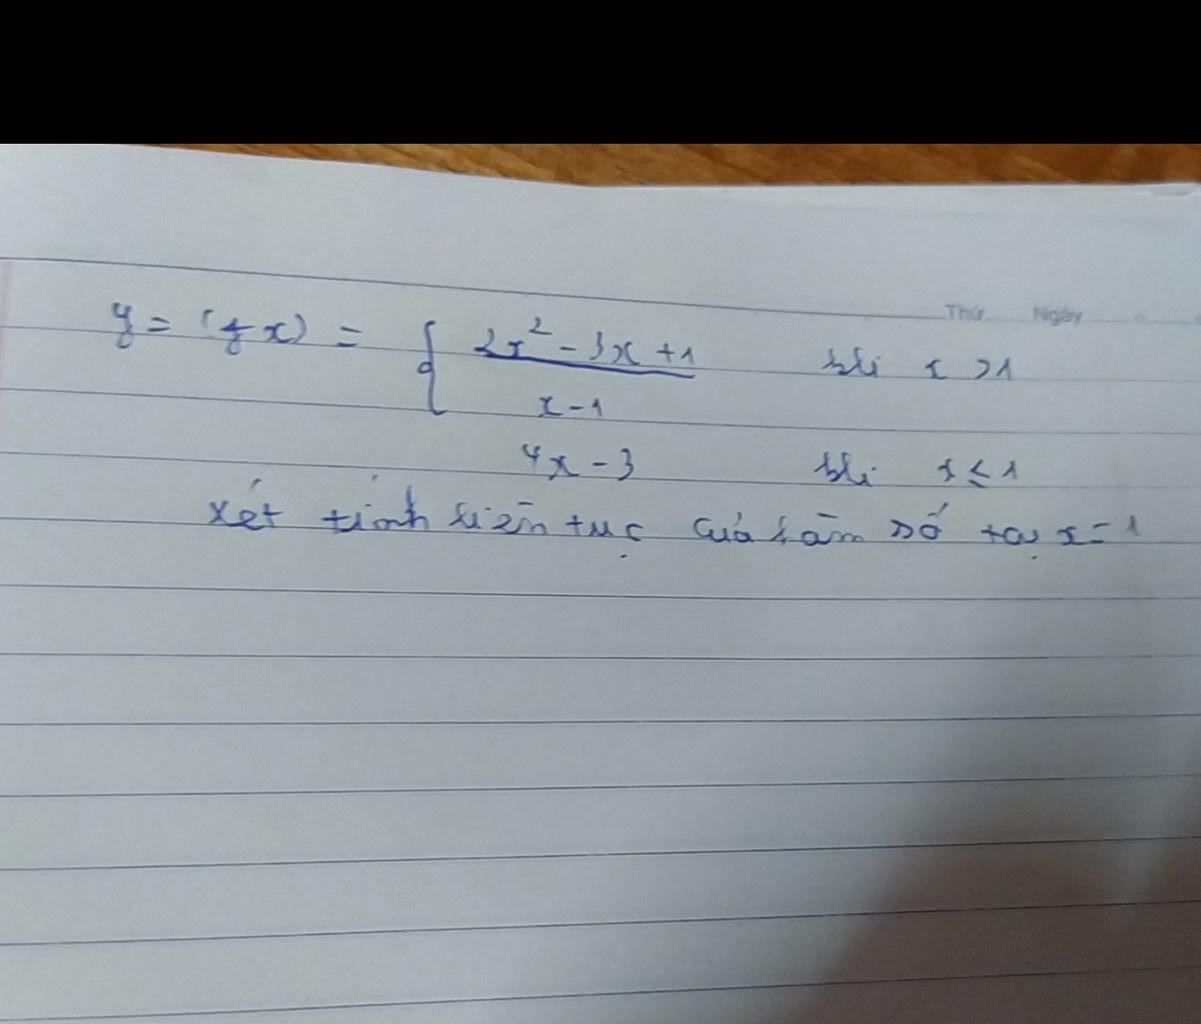 Thứ Ngày
y = (f x) = { 2x² - 3x + 1 khi x > 1
x - 1
4x - 3 khi x ≤ 1
xét tính liên tục của hàm số tại x = 1